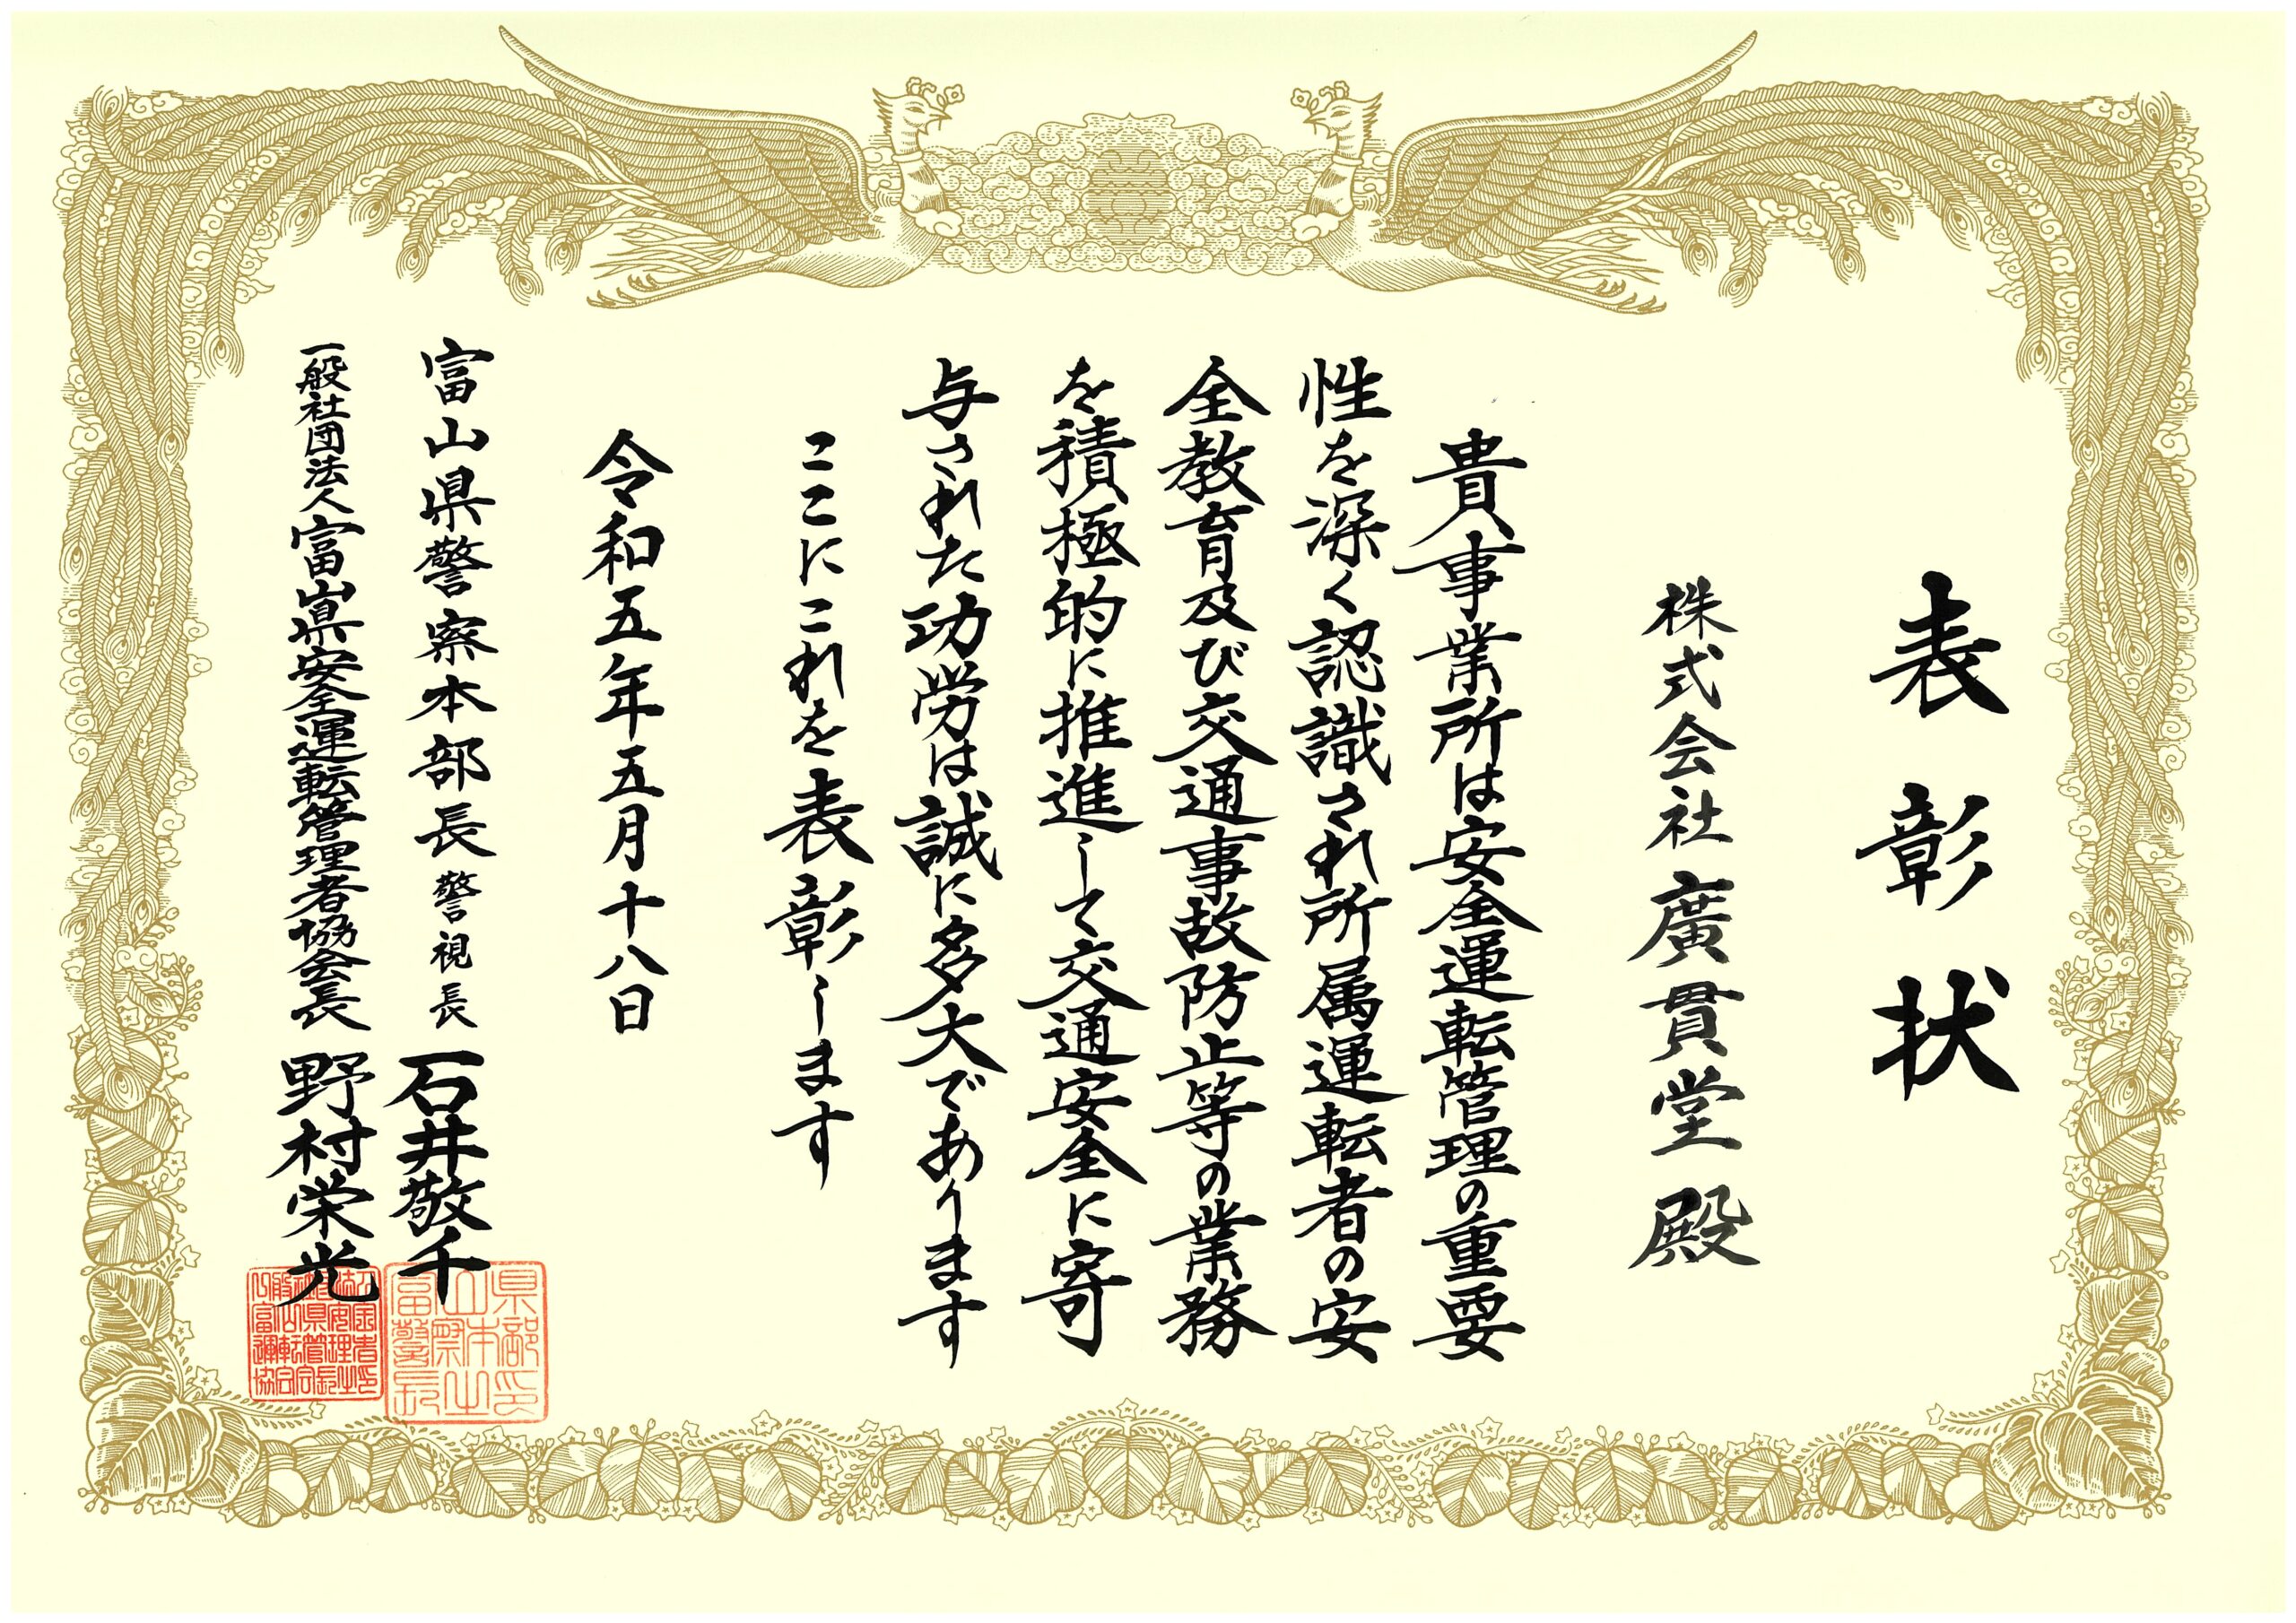 表彰状
株式会社廣貫堂殿
貴事業所は安全運転管理の重要
性を深く認識され所属運転者の安
全教育及び交通事故防止等の業務
を積極的に推進して交通安全に寄
与された功労は誠に多大であります
ここにこれを表彰します
令和五年五月十八日
富山県警察本部長警視長 石井敬千
一般社団法人富山県安全運転管理者協会長 野村栄光